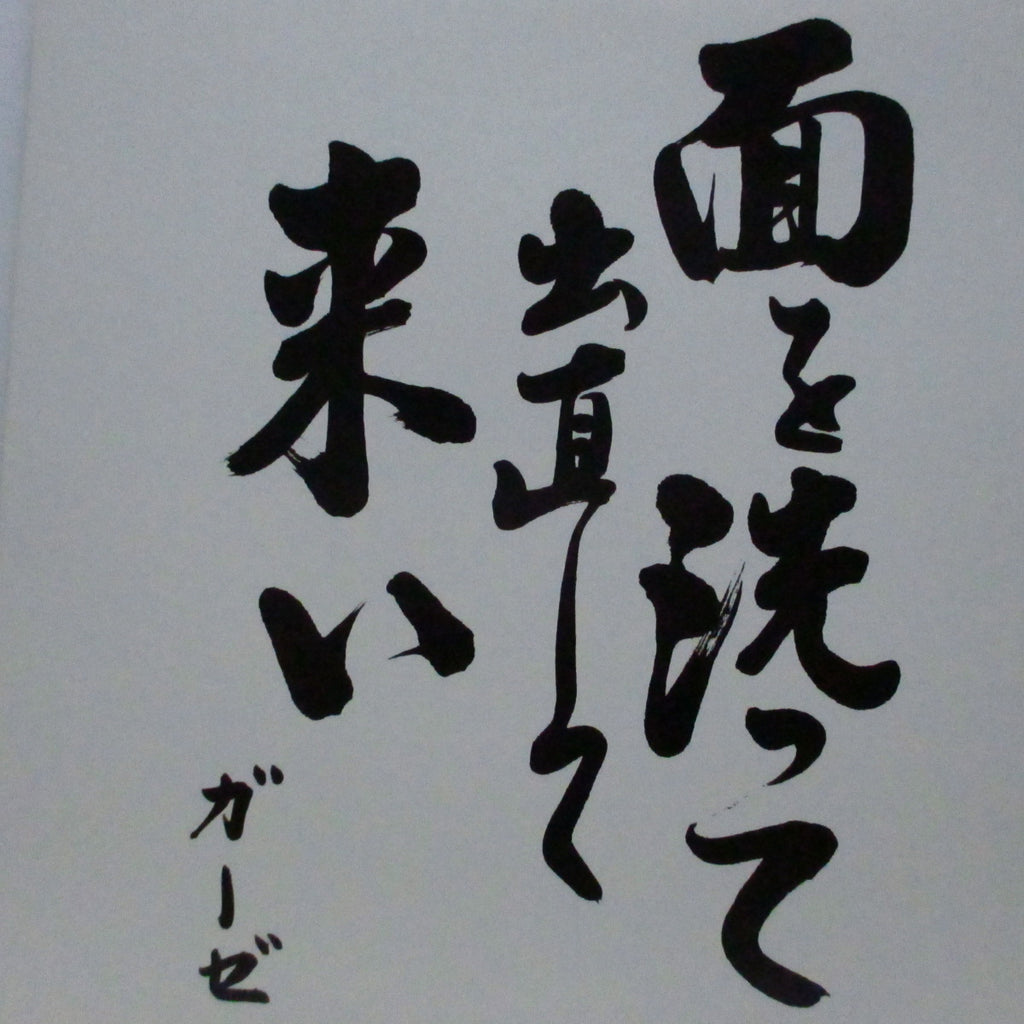 面を洗って
出直して
来い
ガーゼ